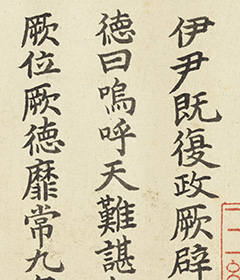 伊尹既復政厥辟
徳曰嗚呼天難諶
厥位厥徳靡常九